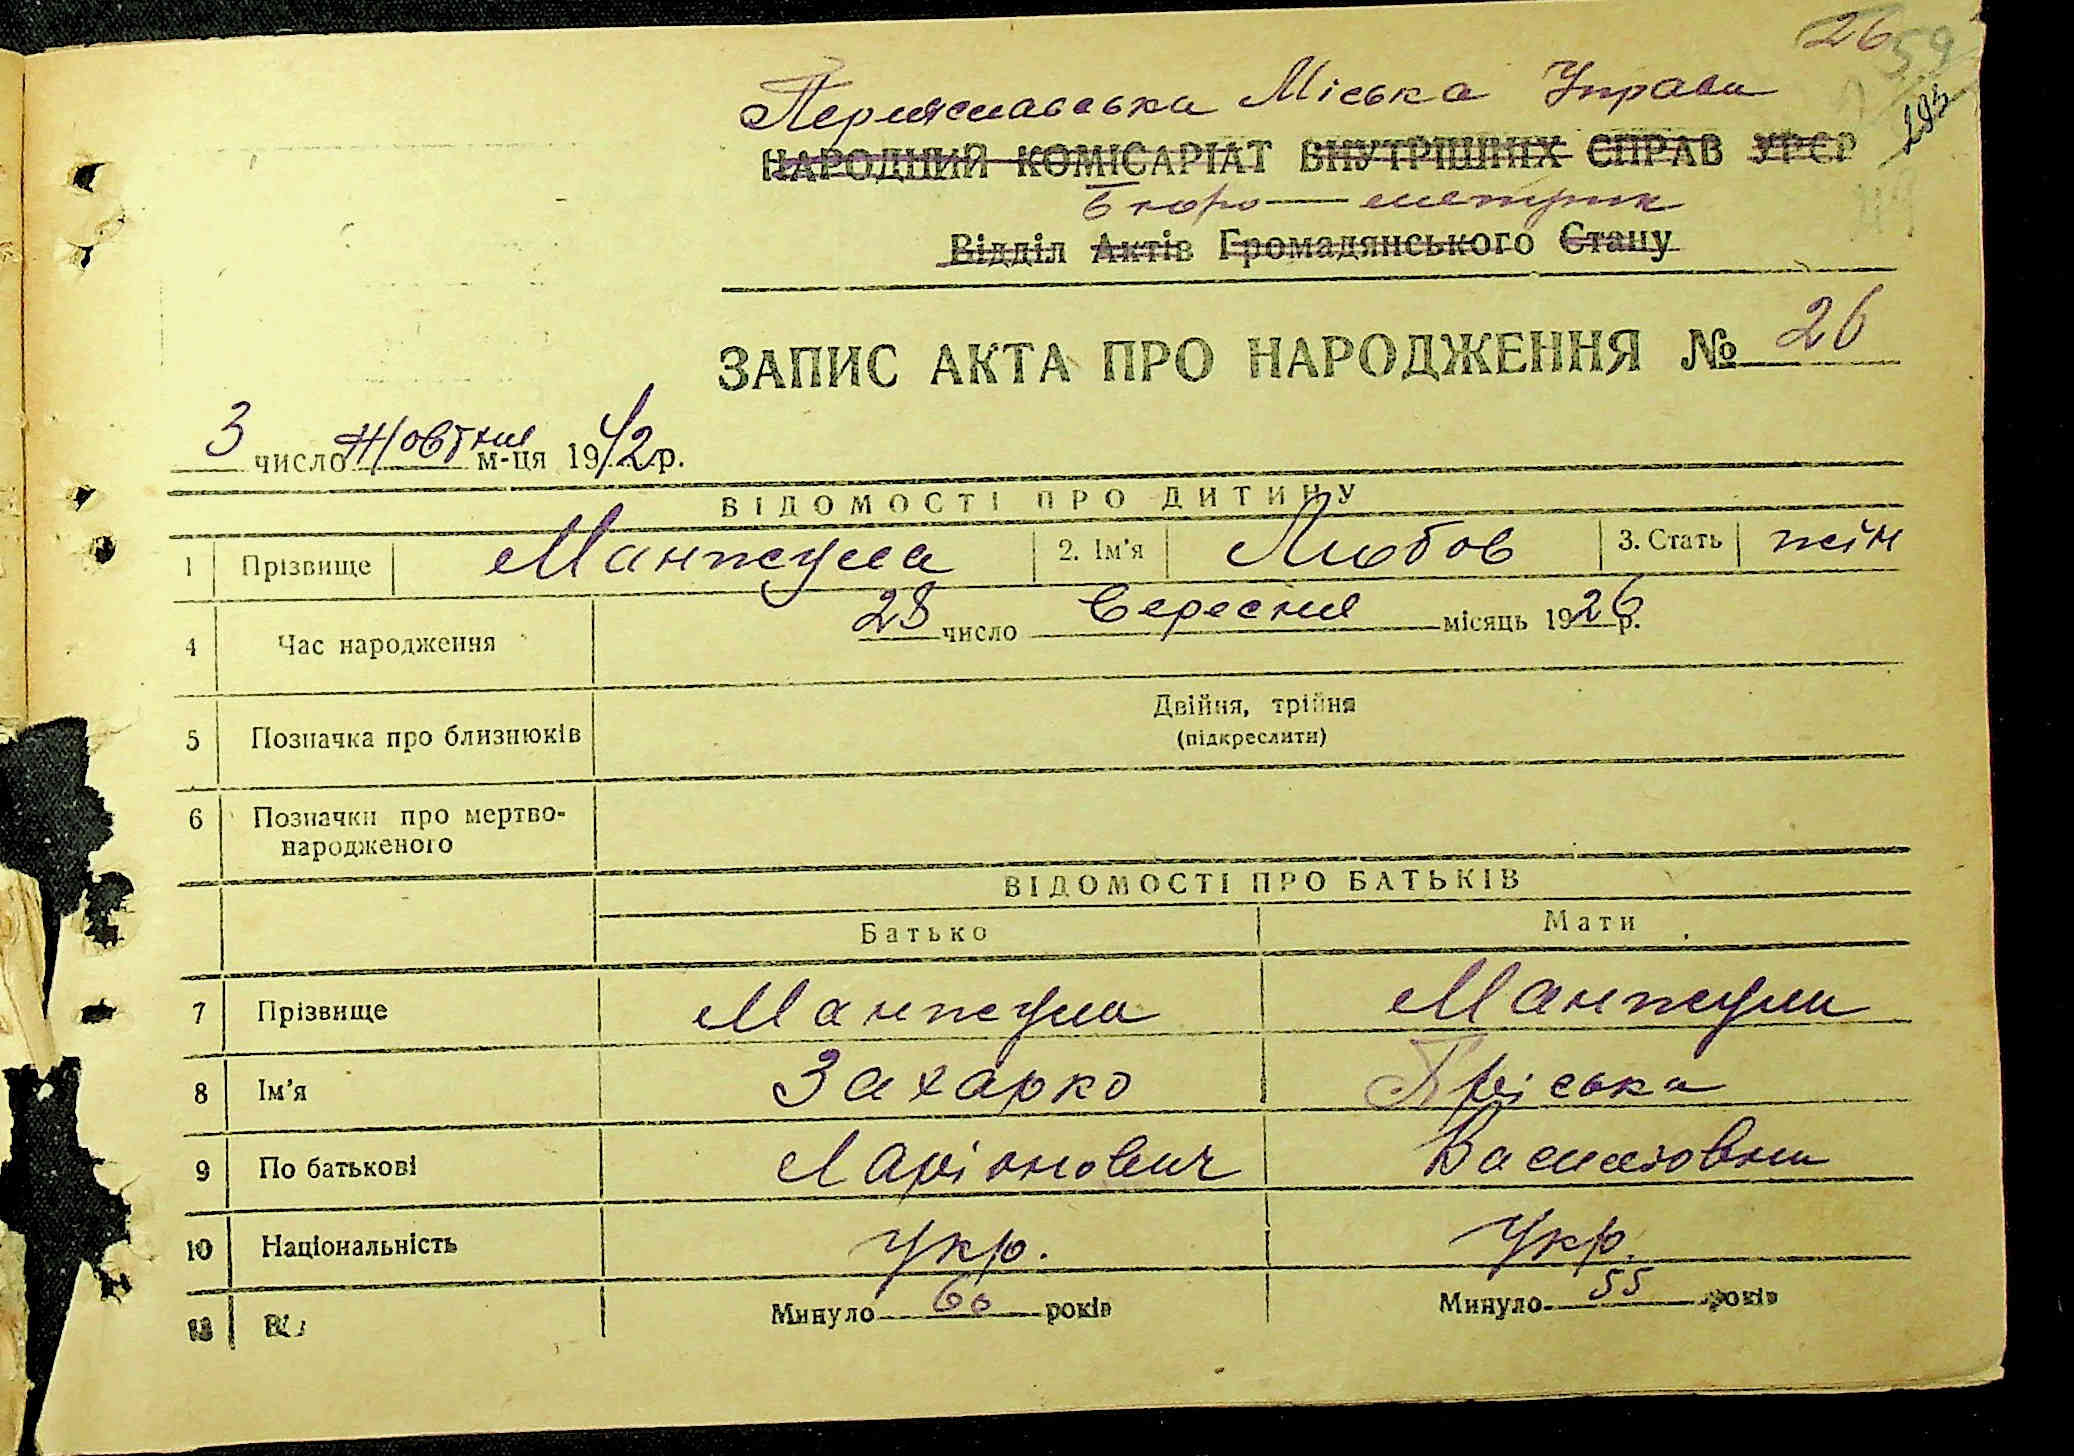 26 59
293
Переяславська Міська Управа
НАРОДНИЙ КОМІСАРІАТ ВНУТРІШНІХ СПРАВ УРСР
Бюро — метрик
Відділ Актів Громадянського Стану
ЗАПИС АКТА ПРО НАРОДЖЕННЯ № 26
3 число Жовтня м-ця 1942 р.
ВІДОМОСТІ ПРО ДИТИНУ
1 Прізвище Манжула 2. Ім'я Любов 3. Стать жін
4 Час народження 28 число Вересня місяць 1926 р.
5 Позначка про близнюків Двійня, трійня
(підкреслити)
6 Позначки про мертво-
народженого
ВІДОМОСТІ ПРО БАТЬКІВ
Батько Мати
7 Прізвище Манжула Манжула
8 Ім'я Захарко Пріська
9 По батькові Ларіонович Василовна
10 Національність Укр. Укр.
Минуло 60 років Минуло 55 років